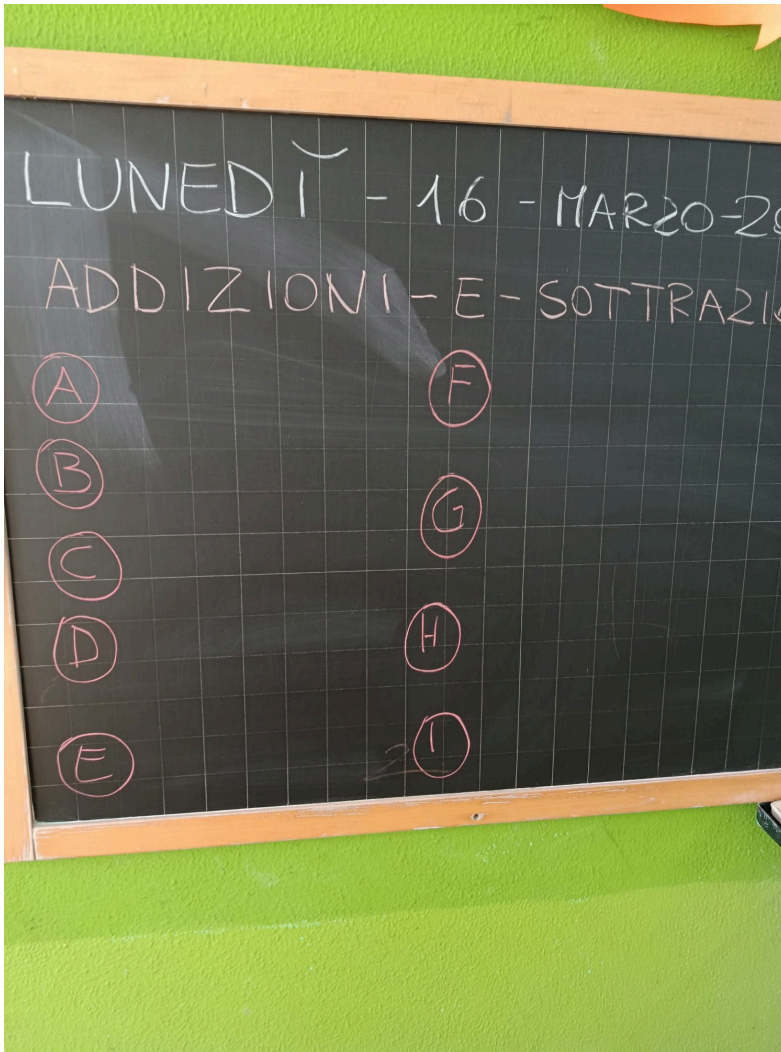 LUNEDÌ - 16 - MARZO - 2
ADDIZIONI - E - SOTTRAZI
A F
B G
C H
D I
E